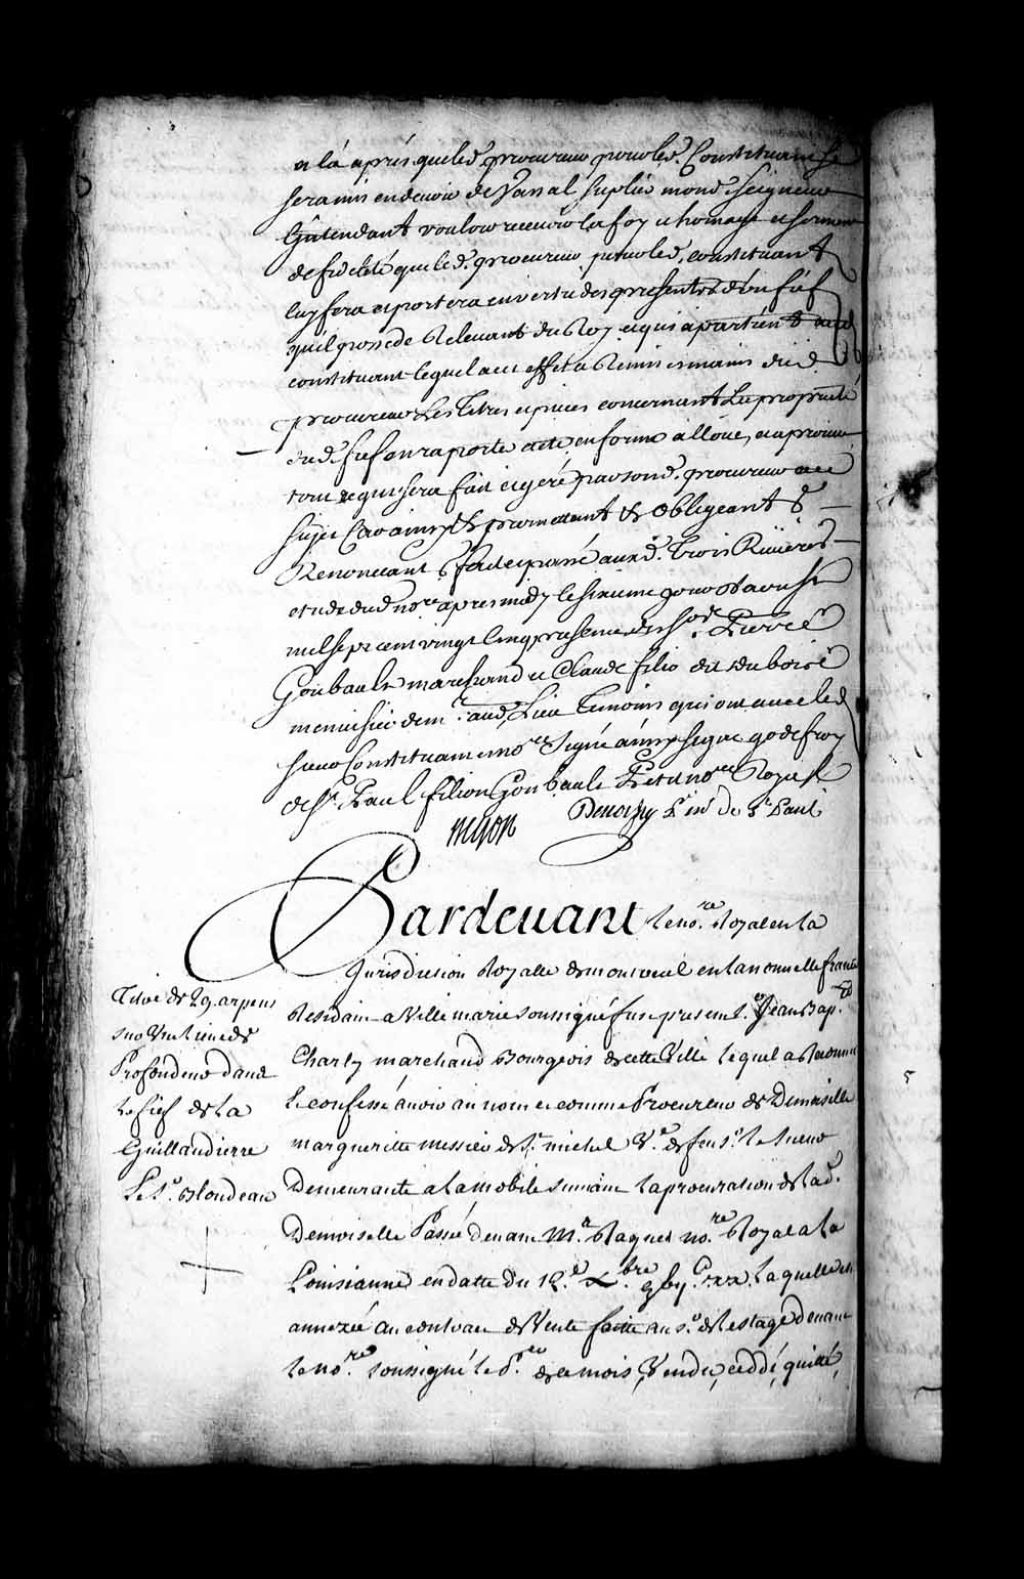 et la après que led. procureur pour led. Constituant se
sera mis en devoir de Vassal suplié mond. Seigneur
Lintendant vouloir recevoir la foy et homage et serment
de fidelité que led. procureur pour led. constituant
luy fera et portera en vertu des presentes du fief
quil possede Relevant du Roy et qui apartient aud
constituant lequel a cet effet a Remis es mains dud
procureur Les Titres et pieces concernant La proprieté
dud. fief en raporter acte en forme
tout ce qui sera fait et geré par sond. procureur au
sujet Car ainsy &c promettant &c obligeant &c
Renonceant &c fait et passé auxd. Trois Rivieres
etude dud nore. apres midy le sixieme jour d'aoust
mil sept cent vingt cinq presence des srs. Pierre
Goübault marchand et Claude filio dit duboisé
menuisier demt. aud. Lieu Temoins qui ont avec led
sieur Constituant et nore. signé ainsy signé godefroy
de St. Paul filion Goubault Petit nore. Royal
Begon
Pardevant le nore. Royal en la
Jurisdiction Royalle de montreal en la nouvelle france
Residant a Ville marie soussigné fut present Sr. Jean Bapte.
Charly marchand Bourgeois de cette Ville lequel a Reconnu
& confessé avoir au nom et comme Procureur de Demoiselle
margueritte messier de St. michel Ve. de feu Sr. le sueur
Demeurante a la mobile suivant la procuration de lad.
Demoiselle Passée devant Mr. Raguet nore. Royal a la
Louisianne en datte du 12e. Xbre. laquelle est
annexée au contract de Vente faitte au Sr. de Lestage devant
le nore. soussigné le de ce mois, Vendu, ceddé, quitté,
Titre de 29. arpens
sur Vint une de
Profondeur dans
le fief de la
Guillaudierre
Le Sr. Blondeau